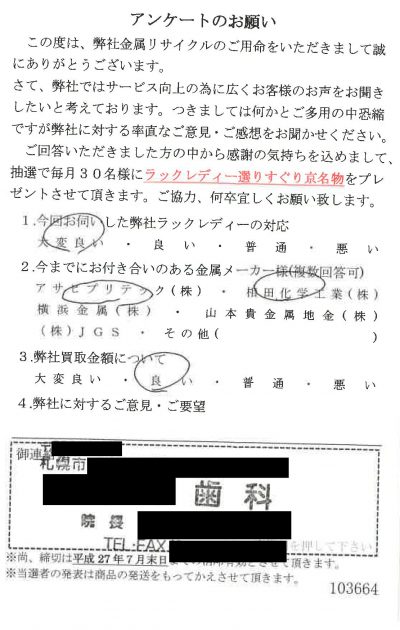 アンケートのお願い
この度は、弊社金属リサイクルのご用命をいただきまして誠
にありがとうございます。
さて、弊社ではサービス向上の為に広くお客様のお声をお聞き
したいと考えております。つきましては何かとご多用の中恐縮
ですが弊社に対する率直なご意見・ご感想をお聞かせください。
ご回答いただきました方の中から感謝の気持ちを込めまして、
抽選で毎月３０名様にラックレディー選りすぐり京名物をプレ
ゼントさせて頂きます。ご協力、何卒宜しくお願い致します。
１.今回お伺いした弊社ラックレディーの対応
大変良い ・ 良い ・ 普通 ・ 悪い
２.今までにお付き合いのある金属メーカー様(複数回答可)
アサヒプリテック(株) ・ 相田化学工業(株)
横浜金属(株) ・ 山本貴金属地金(株)
(株)ＪＧＳ ・ その他( )
３.弊社買取金額について
大変良い ・ 良い ・ 普通 ・ 悪い
４.弊社に対するご意見・ご要望
御連絡
〒
札幌市
歯科
院長
TEL・FAX
を押して下さい
※尚、締切は平成27年7月末日までの消印有効とさせて頂きます。
※当選者の発表は商品の発送をもってかえさせて頂きます。
103664